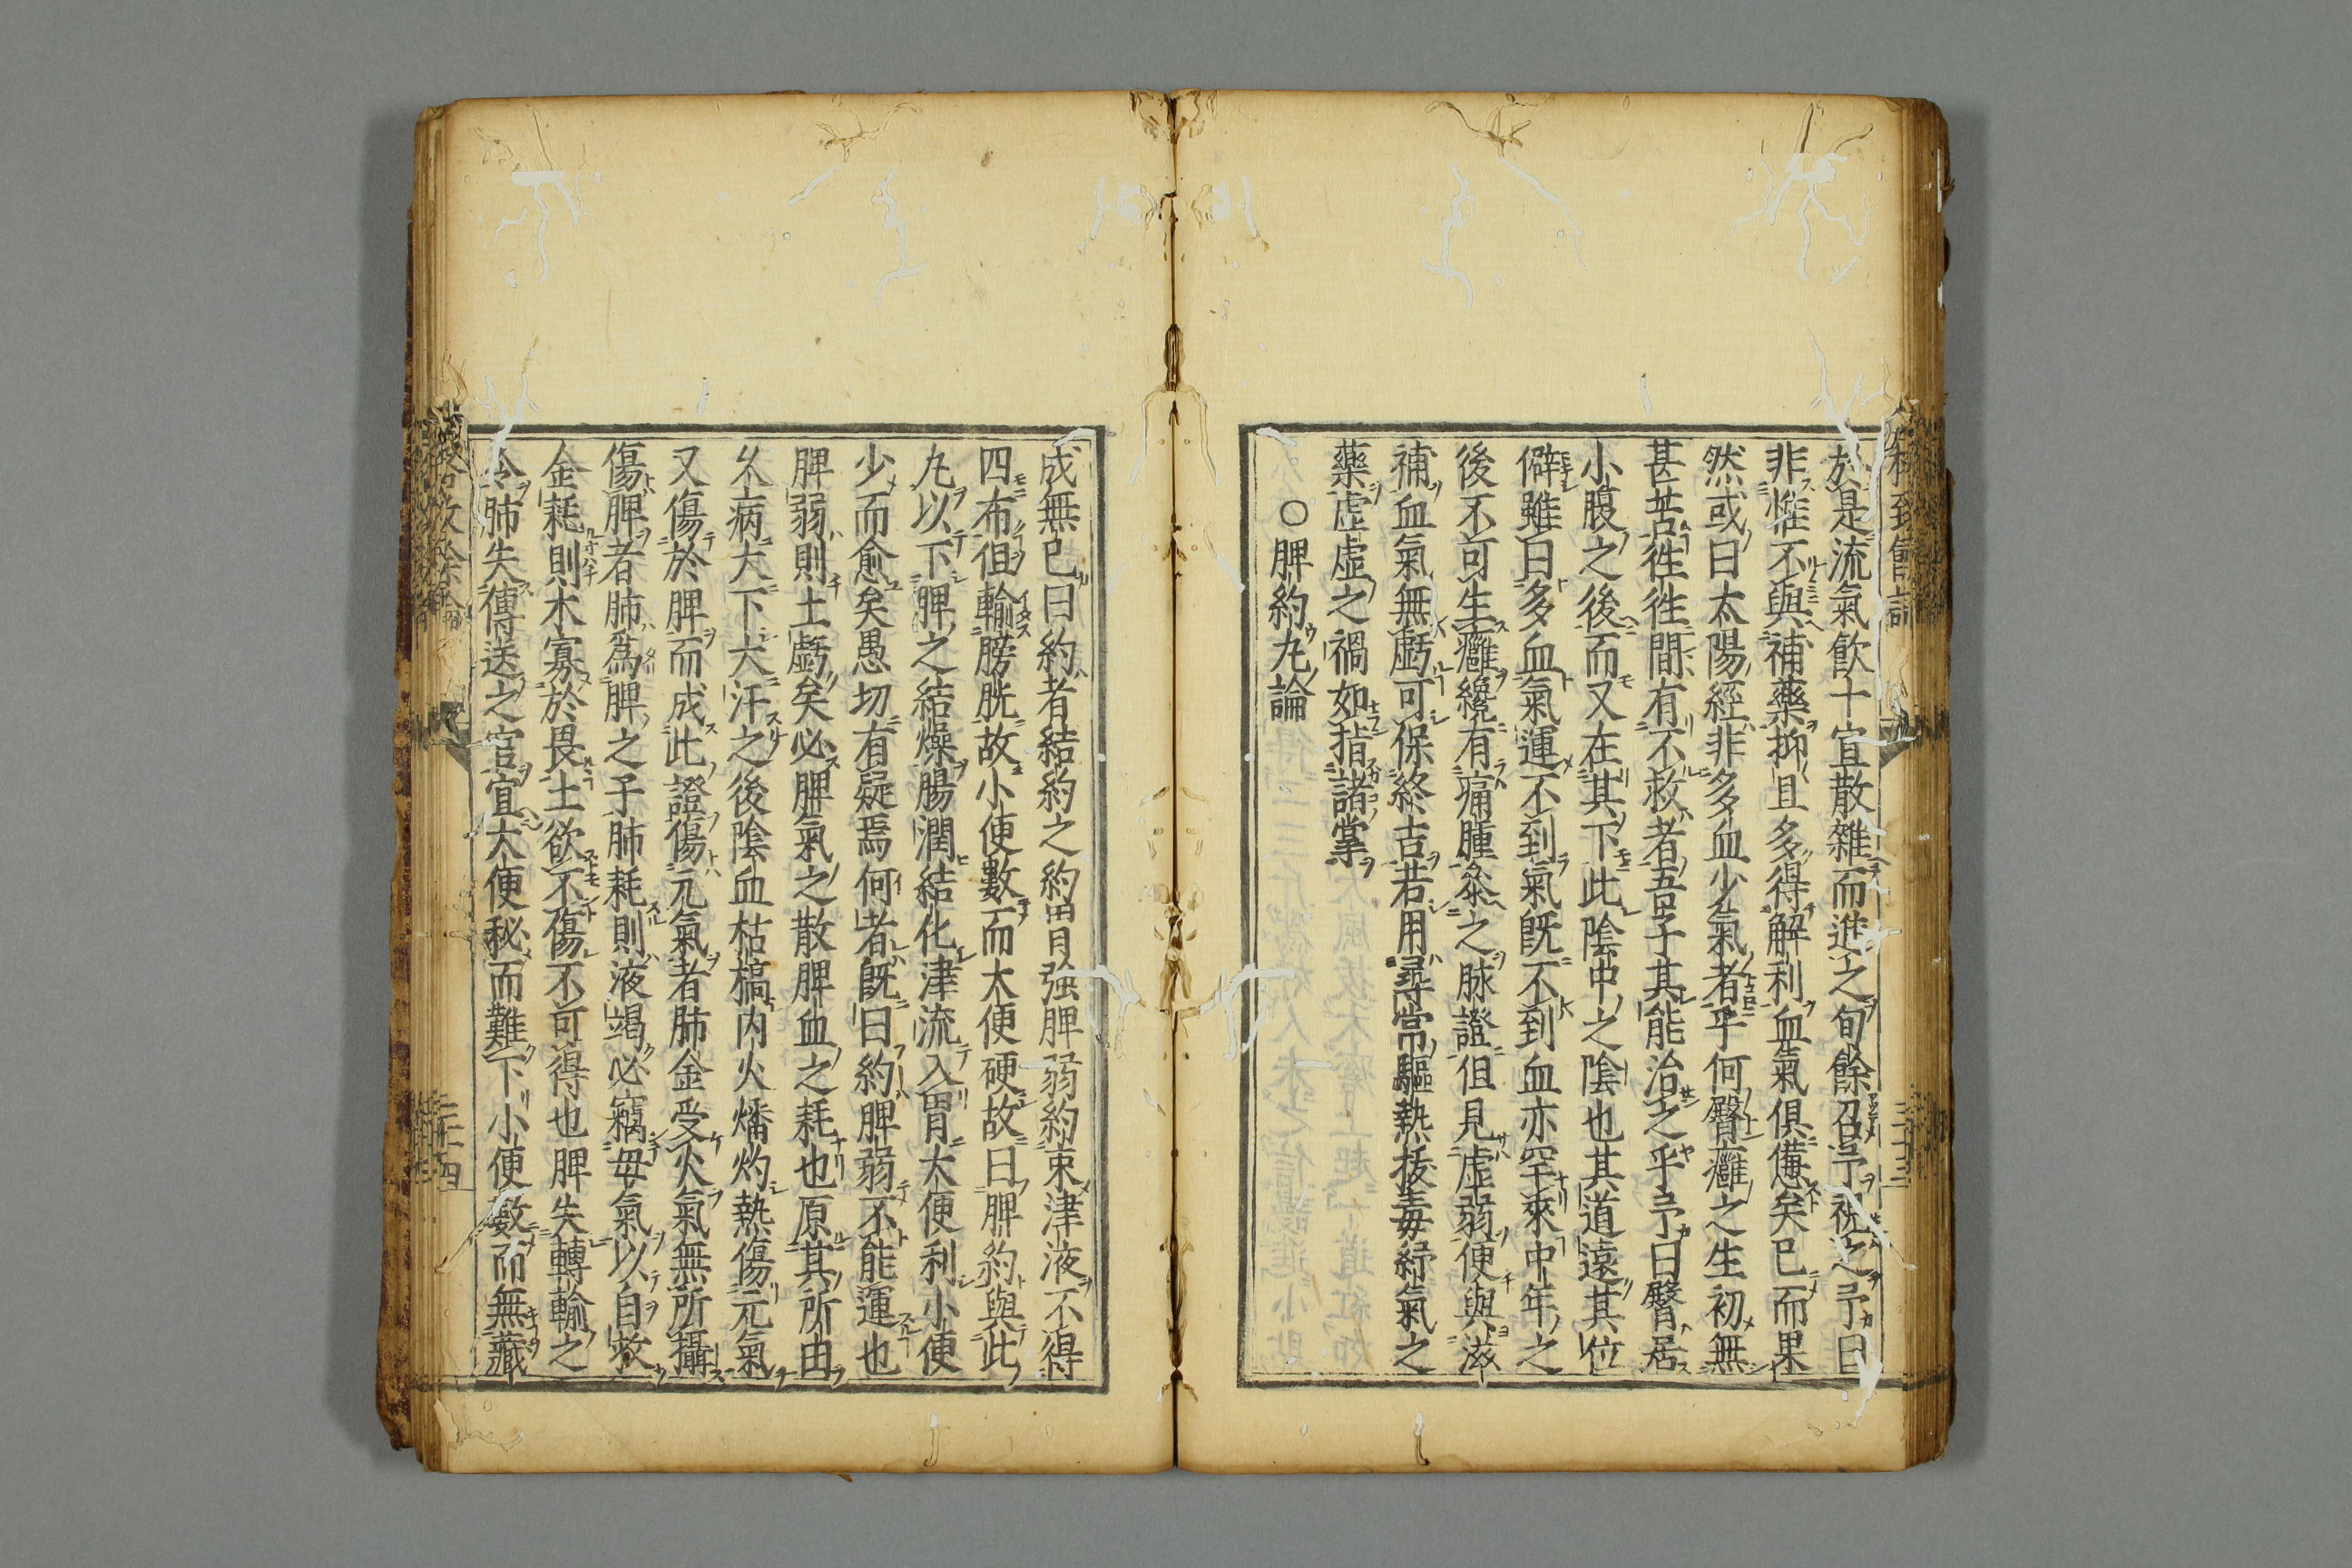 於是流氣飲十宣散雜而進之旬餘召予視之予曰
非惟不與補藥抑且多得解利血氣俱憊矣已而果
然或曰太陽經非多血少氣者乎何臀癰之生初無
甚苦徃徃間有不救者吾子其能治之乎予曰臀居
小腹之後而又在其下此陰中之陰也其道遠其位
僻雖曰多血氣運不到氣既不到血亦罕來中年之
後不可生癰纔有痛腫叅之脉證但見虛弱便與滋
補血氣無虧可保終吉若用尋常驅熱拔毒紓氣之
藥虛虛之禍如指諸掌
○脾約丸論
成無已曰約者結約之約胃強脾弱約束津液不得
四布但輸膀胱故小便數而大便硬故曰脾約與此
丸以下脾之結燥腸潤結化津流入胃大便利小便
少而愈矣愚切有疑焉何者既曰約脾弱不能運也
脾弱則土虧矣必脾氣之散脾血之耗也原其所由
久病大下大汗之後陰血枯槁内火燔灼熱傷元氣
又傷於脾而成此證傷元氣者肺金受火氣無所攝
傷脾者肺爲脾之子肺耗則液竭必竊母氣以自救
金耗則木寡於畏土欲不傷不可得也脾失轉輸之
令肺失傳送之官宜大便秘而難下小便數而無藏